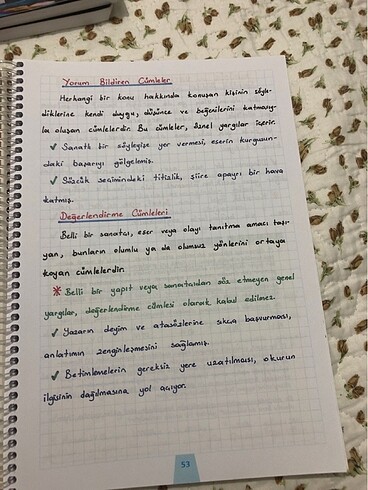 Yorum Bildiren Cümleler
Herhangi bir konu hakkında konuşan kişinin söyle-
diklerine kendi duygu, düşünce ve beğenilerini katmasıy-
la oluşan cümlelerdir. Bu cümleler, öznel yargılar içerir.
✓ Sanatlı bir söyleyişe yer vermesi, eserin kurgusun-
daki başarıyı gölgelemiş.
✓ Sözcük seçimindeki titizlik, şiire apayrı bir hava
katmış.
Değerlendirme Cümleleri
Belli bir sanatçı, eser veya olayı tanıtma amacı taşı-
yan, bunların olumlu ya da olumsuz yönlerini ortaya
koyan cümlelerdir.
* Belli bir yapıt veya sanatçıdan söz etmeyen genel
yargılar, değerlendirme cümlesi olarak kabul edilmez.
✓ Yazarın deyim ve atasözlerine sıkça başvurması,
anlatımın zenginleşmesini sağlamış.
✓ Betimlemelerin gereksiz yere uzatılması, okurun
ilgisinin dağılmasına yol açıyor.
53